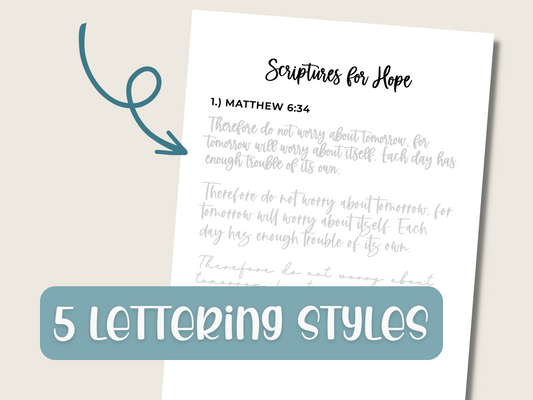 Scriptures for Hope
1.) MATTHEW 6:34
Therefore do not worry about tomorrow, for
tomorrow will worry about itself. Each day has
enough trouble of its own.
Therefore do not worry about tomorrow, for
tomorrow will worry about itself. Each
day has enough trouble of its own.
Therefore do not worry about
5 LETTERING STYLES